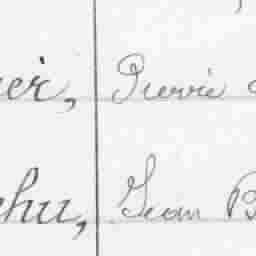 ier, Pierre
chu, Jean B